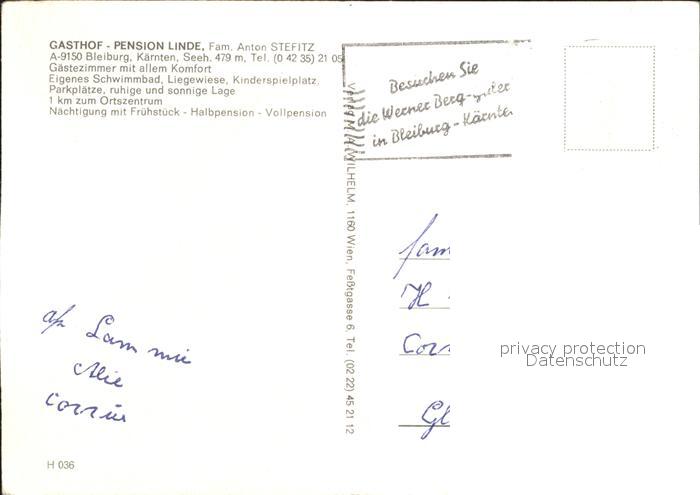 GASTHOF - PENSION LINDE, Fam. Anton STEFITZ
A-9150 Bleiburg, Kärnten, Seeh. 479 m, Tel. (0 42 35) 21 05
Gästezimmer mit allem Komfort
Eigenes Schwimmbad, Liegewiese, Kinderspielplatz,
Parkplätze, ruhige und sonnige Lage
1 km zum Ortszentrum
Nächtigung mit Frühstück - Halbpension - Vollpension
Besuchen Sie
die Werner Berg-
in Bleiburg - Kärnten
WILHELM, 1160 Wien, Feßtgasse 6, Tel. (02 22) 45 21 12
fam
H
Cor
Gl
privacy protection
Datenschutz
H 036